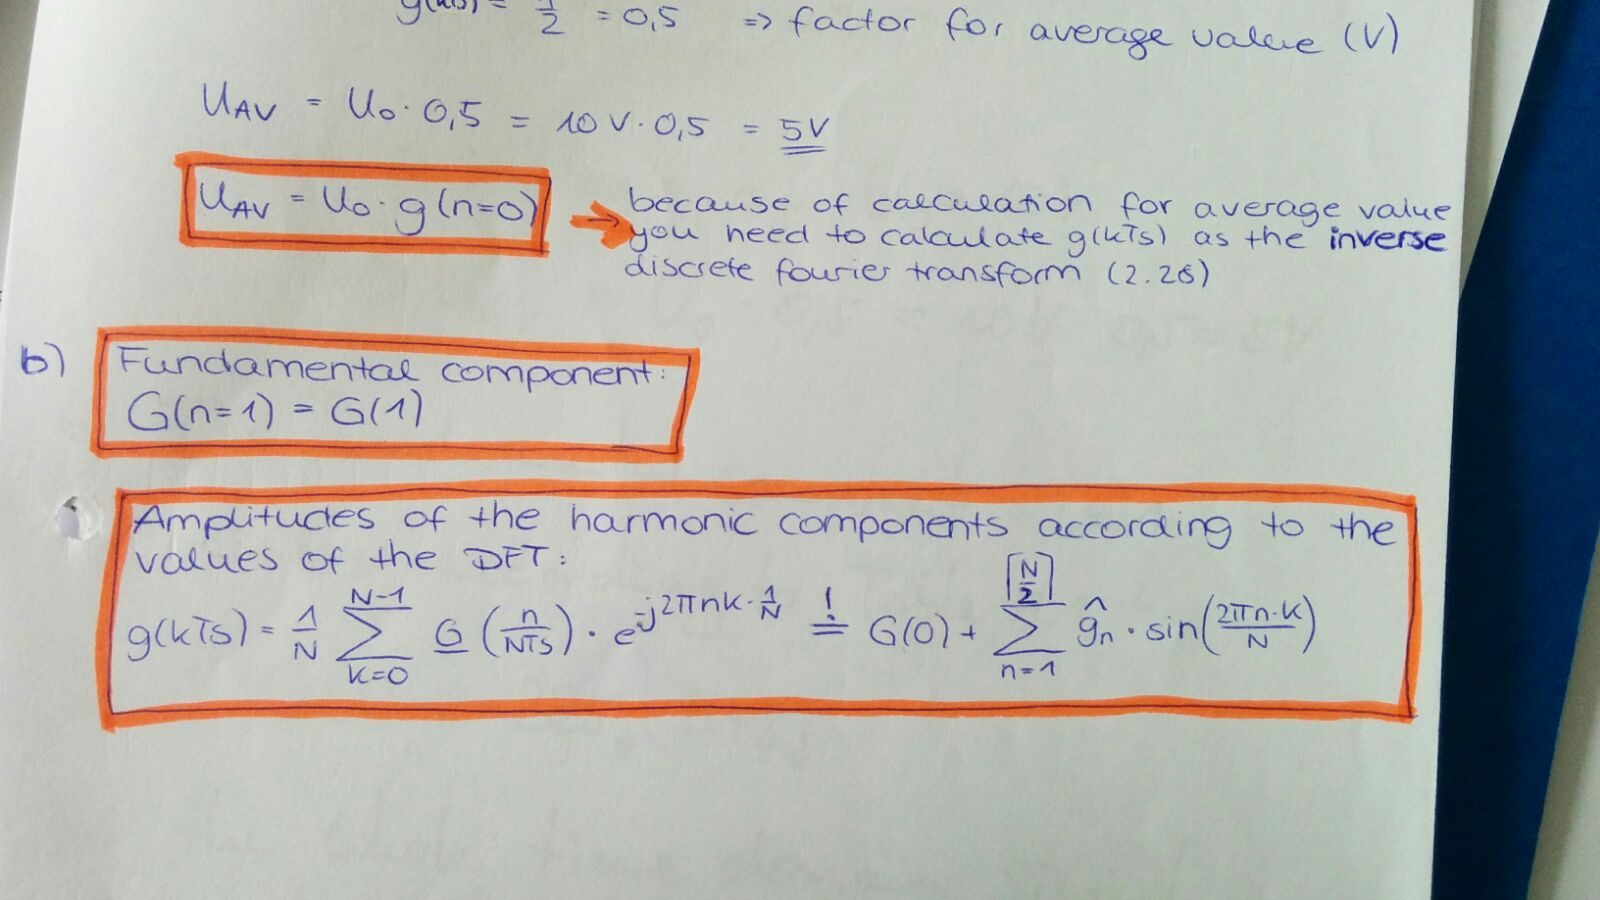 g(kTs) = 1/2 = 0,5 => factor for average value (V)
U_AV = U_0 · 0,5 = 10 V · 0,5 = 5V
U_AV = U_0 · g(n=0) → because of calculation for average value
you need to calculate g(kTs) as the inverse
discrete fourier transform (2.26)
b) Fundamental component:
G(n=1) = G(1)
Amplitudes of the harmonic components according to the
values of the DFT:
g(kTs) = 1/N ∑_{k=0}^{N-1} G (n/NTs) · e^{-j2πnk · 1/N} =! G(0) + ∑_{n=1}^{⌈N/2⌉} ĝ_n · sin(2πn·k/N)